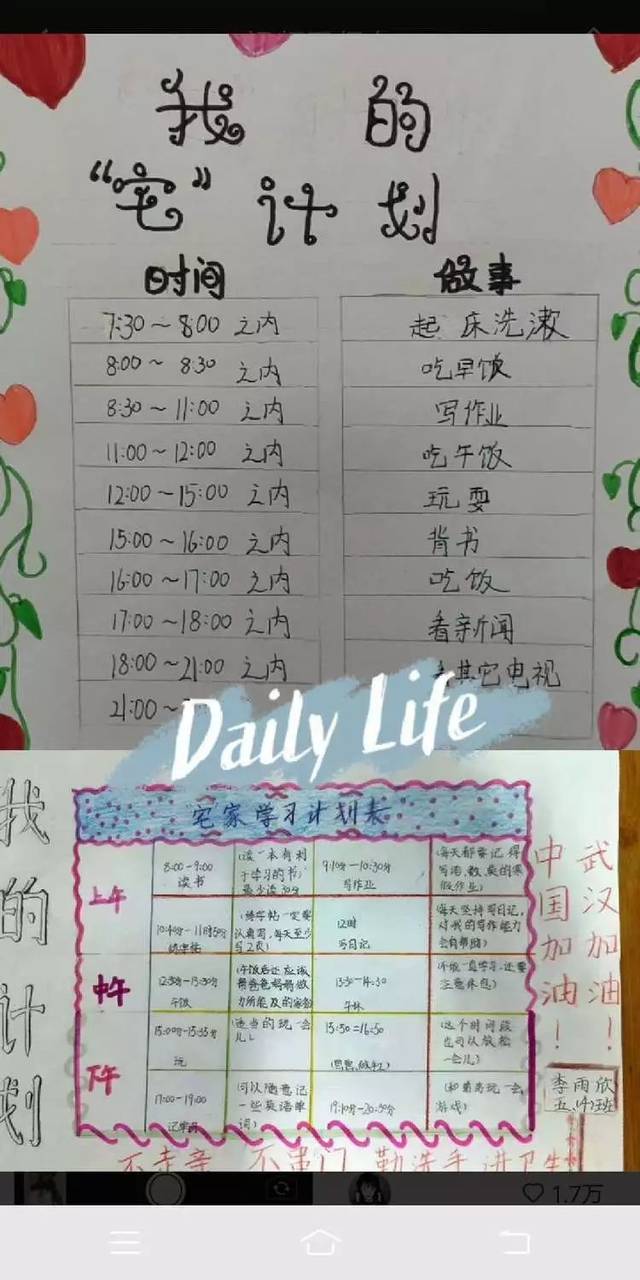 我的
“宅”计划
时间 做事
7:30～8:00 之内 起床洗漱
8:00～8:30 之内 吃早饭
8:30～11:00 之内 写作业
11:00～12:00 之内 吃午饭
12:00～15:00 之内 玩耍
15:00～16:00 之内 背书
16:00～17:00 之内 吃饭
17:00～18:00 之内 看新闻
18:00～21:00 之内 其它电视
21:00～
Daily Life
我的计划
宅家学习计划表
上午
8:00-9:00
读书
(读一本有利
于学习的书)
最少读30分
9:10分-10:30分
写作业
(每天都要记得
写语、数、英的寒
假作业)
10:40分-11时50分
练字帖
(练字帖一定要
认真写,每天至少
写2页)
12时
写日记
(每天坚持写日记,
对我的写作能力
会有帮助)
中午
12:30分-13:30分
午饭
(午饭后还应该
帮爸爸妈妈做
力所能及的家务)
13:30-14:30
午休
(不能一直学习,还要
注意休息)
下午
15:00分-15:35分
玩
(适当的玩一会
儿)
15:50=16:50
(这个时间段
也可以放松
一会儿)
17:00-19:00
记单词
(可以随意记
一些英语单
词)
19:10分-20:30分
(和弟弟玩一会
游戏)
武汉加油!
中国加油!
李雨欣
五.(4)班
不走亲 不串门 勤洗手 讲卫生
1.7万